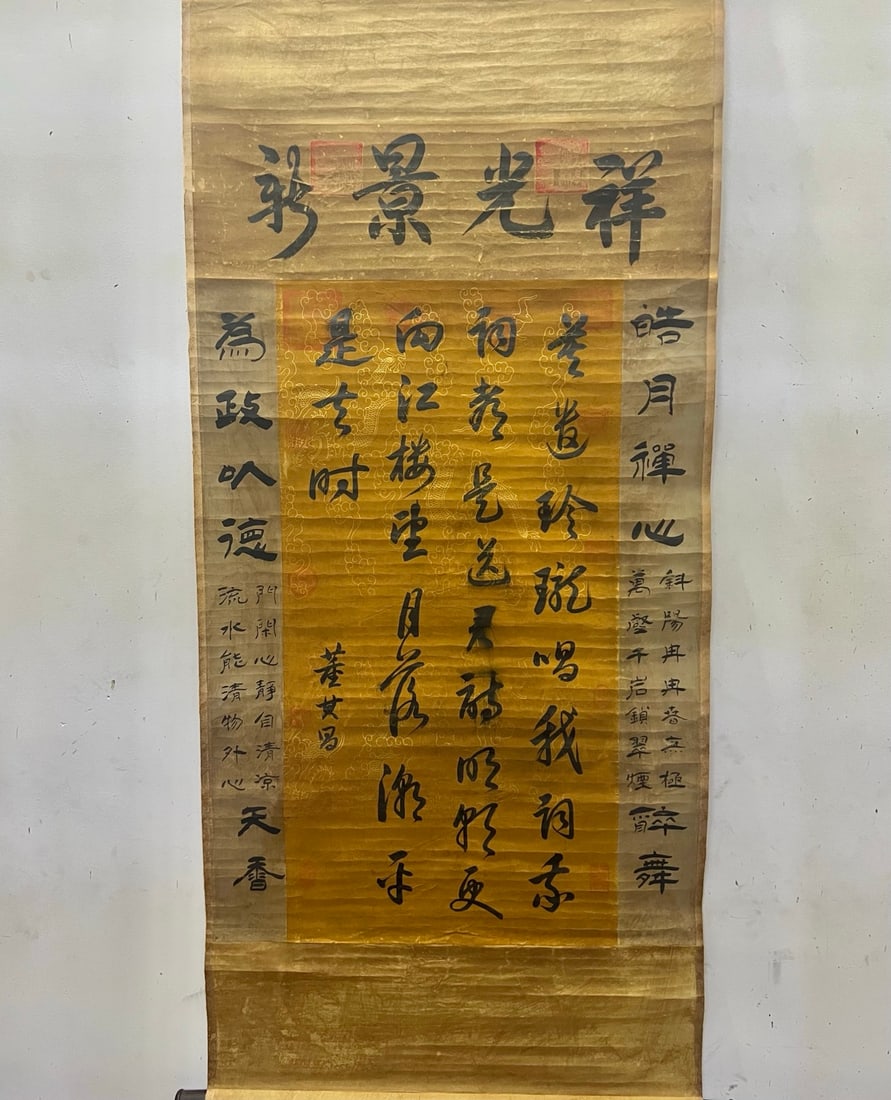 祥光景新
皓月禪心
斜陽冉冉春無極
萬壑千岩鎖翠煙
醉舞
莫遣玲瓏唱我詞我
詞都是送君詩明朝更
向江樓望月落潮平
是去時
董其昌
為政以德
門閑心靜自清涼
流水能清物外心
天香